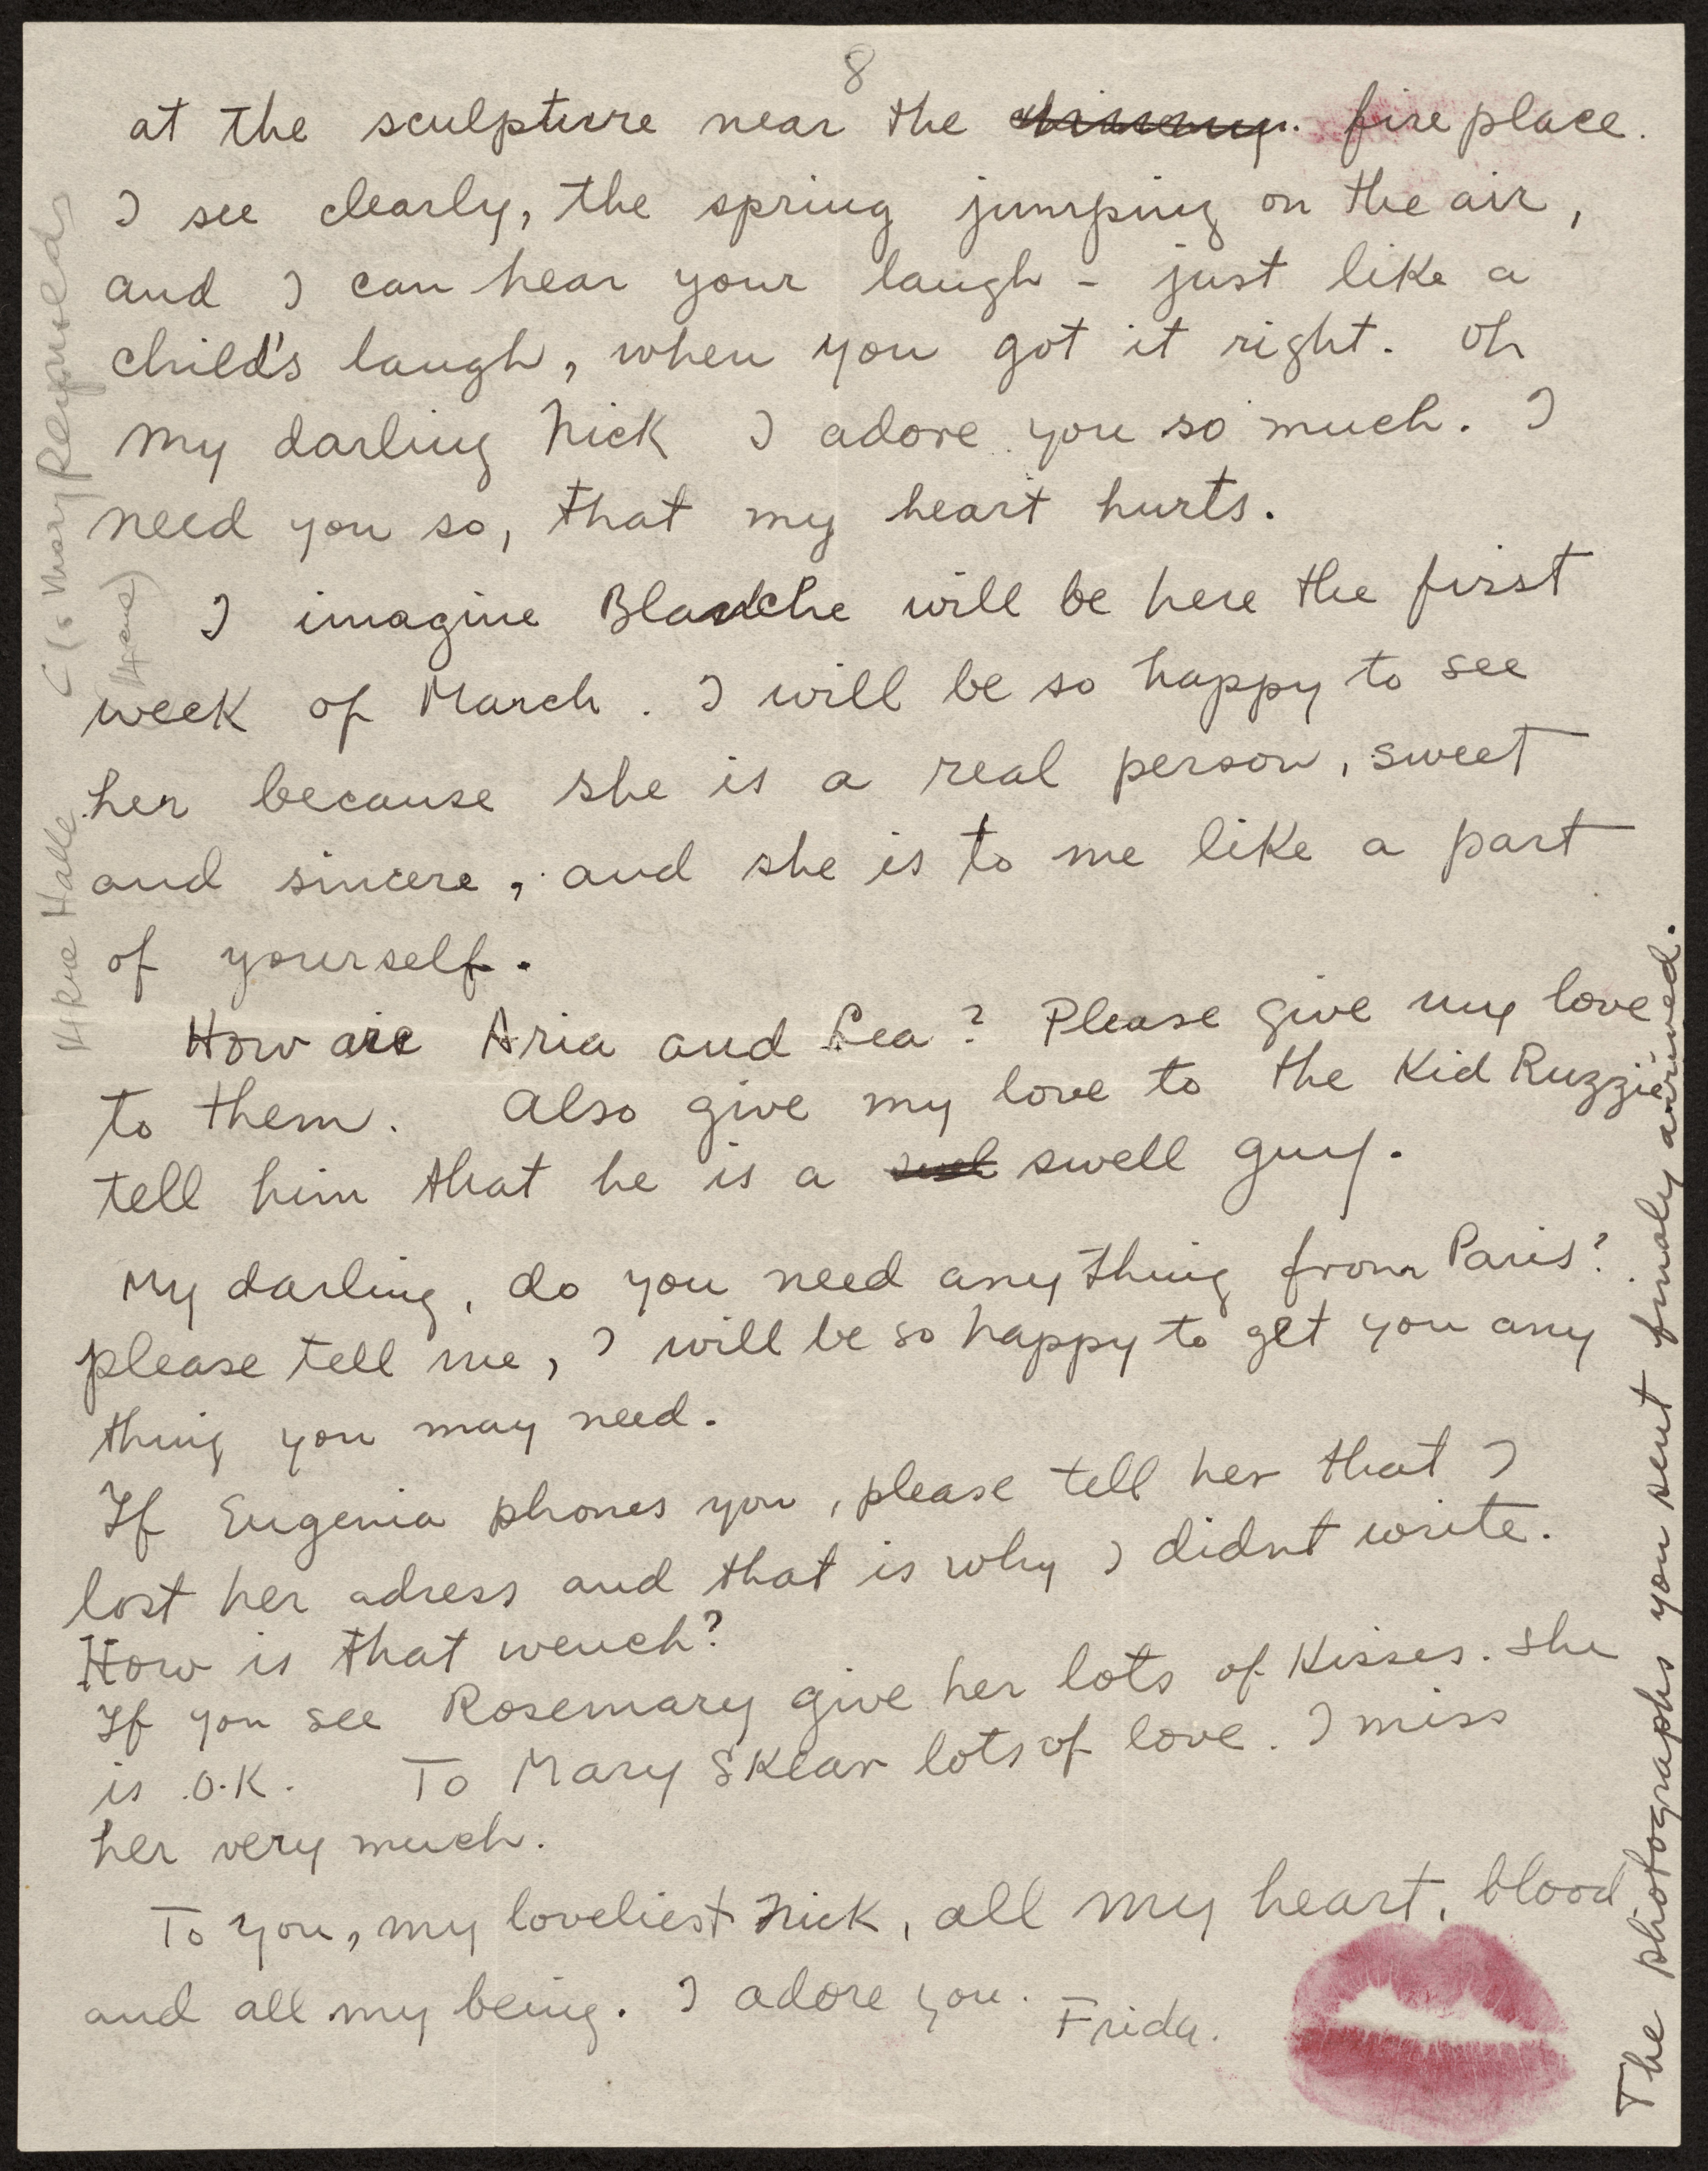 8
at the sculpture near the fire place.
I see clearly, the spring jumping on the air,
and I can hear your laugh - just like a
child's laugh, when you got it right. Oh
my darling Nick I adore you so much. I
need you so, that my heart hurts.
I imagine Blanche will be here the first
week of March. I will be so happy to see
her because she is a real person, sweet
and sincere, and she is to me like a part
of yourself.
How are Aria and Lea? Please give my love
to them. Also give my love to the Kid Ruzzie
tell him that he is a swell guy.
My darling, do you need any thing from Paris?
please tell me, I will be so happy to get you any
thing you may need.
If Eugenia phones you, please tell her that I
lost her adress and that is why I didnt write.
How is that wench?
If you see Rosemary give her lots of Kisses. She
is O.K. To Mary Sklar lots of love. I miss
her very much.
To you, my loveliest Nick, all my heart, blood
and all my being. I adore you.
Frida.
The photographs you sent finaly arrived.
Halle
Mary Reynolds